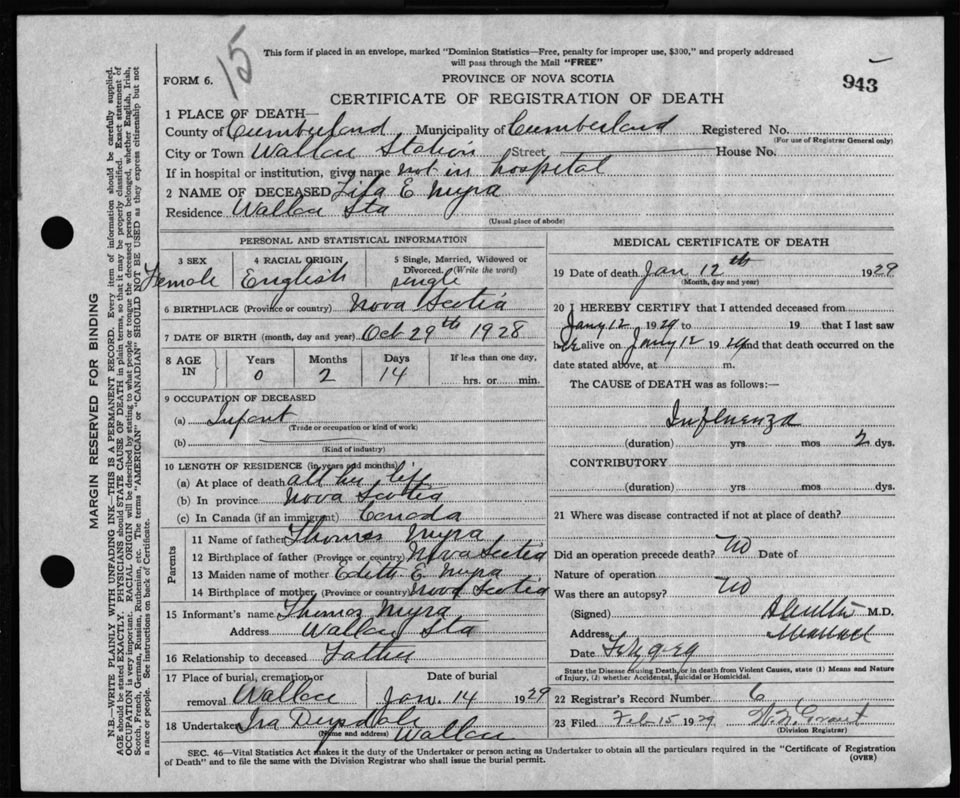 15
This form if placed in an envelope, marked "Dominion Statistics—Free, penalty for improper use, $300," and properly addressed
will pass through the Mail "FREE"
FORM 6.
PROVINCE OF NOVA SCOTIA
943
CERTIFICATE OF REGISTRATION OF DEATH
1 PLACE OF DEATH—
County of Cumberland Municipality of Cumberland Registered No.
(For use of Registrar General only)
City or Town Wallace Station Street House No.
If in hospital or institution, give name not in hospital
2 NAME OF DECEASED E Myra
Residence Wallace Sta
(Usual place of abode)
PERSONAL AND STATISTICAL INFORMATION
3 SEX 4 RACIAL ORIGIN 5 Single, Married, Widowed or
Divorced. (Write the word)
Female English single
6 BIRTHPLACE (Province or country) Nova Scotia
7 DATE OF BIRTH (month, day and year) Oct 29th 1928
8 AGE IN Years Months Days If less than one day,
0 2 14 hrs. or min.
9 OCCUPATION OF DECEASED
(a) Infant
(Trade or occupation or kind of work)
(b)
(Kind of industry)
10 LENGTH OF RESIDENCE (in years and months)
(a) At place of death all her life
(b) In province Nova Scotia
(c) In Canada (if an immigrant) Canada
Parents
11 Name of father Thomas Myra
12 Birthplace of father (Province or country) Nova Scotia
13 Maiden name of mother Edith E Myra
14 Birthplace of mother (Province or country) Nova Scotia
15 Informant's name Thomas Myra
Address Wallace Sta
16 Relationship to deceased Father
17 Place of burial, cremation or Date of burial
removal Wallace Jan. 14 1929
18 Undertaker Ira Wallace
(Name and address)
MEDICAL CERTIFICATE OF DEATH
19 Date of death Jan 12th 1929
(Month, day and year)
20 I HEREBY CERTIFY that I attended deceased from
Jany 12 1929 to 19 that I last saw
her alive on Jany 12 1929 and that death occurred on the
date stated above, at m.
The CAUSE of DEATH was as follows:—
Influenza
(duration) yrs mos 2 dys.
CONTRIBUTORY
(duration) yrs mos dys.
21 Where was disease contracted if not at place of death?
Did an operation precede death? No Date of
Nature of operation
Was there an autopsy? No
(Signed) M.D.
Address
Date Feby 9-29
State the Disease causing Death, or in death from Violent Causes, state (1) Means and Nature
of Injury, (2) whether Accidental, Suicidal or Homicidal.
22 Registrar's Record Number 6
23 Filed Feb 15 1929 Grant
(Division Registrar)
SEC. 46—Vital Statistics Act makes it the duty of the Undertaker or person acting as Undertaker to obtain all the particulars required in the "Certificate of Registration
of Death" and to file the same with the Division Registrar who shall issue the burial permit.
(OVER)
MARGIN RESERVED FOR BINDING
N.B.—WRITE PLAINLY WITH UNFADING INK—THIS IS A PERMANENT RECORD. Every item of information should be carefully supplied.
AGE should be stated EXACTLY. PHYSICIANS should STATE CAUSE OF DEATH in plain terms, so that it may be properly classified. Exact statement of
OCCUPATION is very important. RACIAL ORIGIN will be described by stating to what people or tongue the deceased person belonged, whether English, Irish,
Scotch, French, German, Russian, Ruthenian, etc. The terms "AMERICAN" or "CANADIAN" SHOULD NOT BE USED as they express citizenship but not
a race or people. See instructions on back of Certificate.